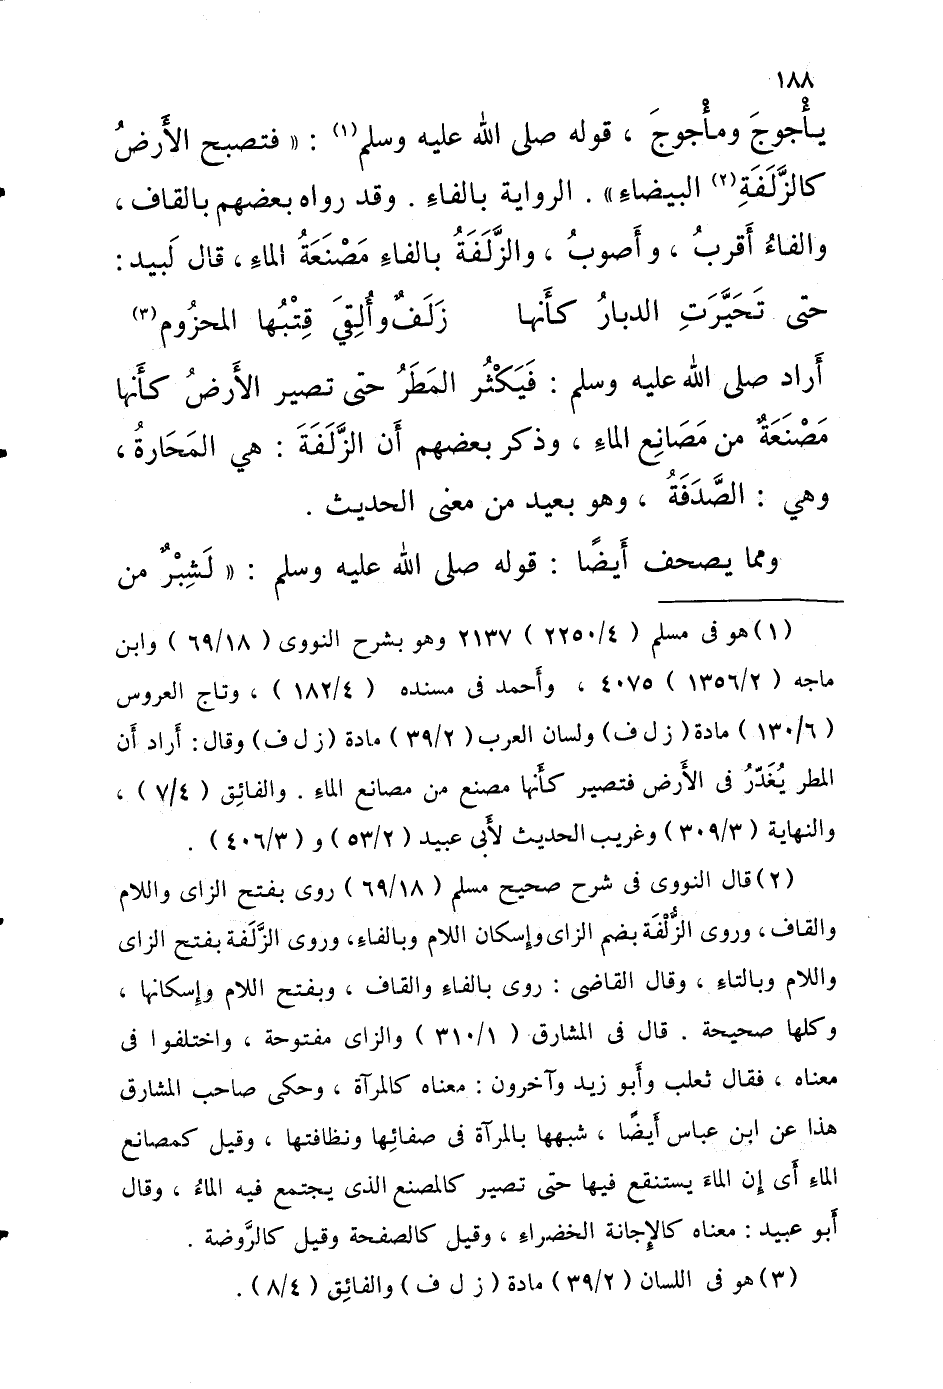 ١٨٨
يأْجوجَ ومأْجوجَ ، قوله صلى الله عليه وسلم(١) : « فتصبح الأَرضُ
كالزَّلَفَةِ(٢) البيضاءِ» . الرواية بالفاءِ . وقد رواه بعضهم بالقاف ،
والفاءُ أَقربُ ، وأَصوبُ ، والزَّلَفَةُ بالفاءِ مَصْنَعَةُ الماءِ ، قال لَبيد :
حتى تَحَيَّرَتِ الدبارُ كأَنها زَلَفٌ وأُلقِيَ قِتْبُها المحزُوم(٣)
أَراد صلى الله عليه وسلم : فَيَكْثُر المَطَرُ حتى تصير الأَرضُ كأَنها
مَصْنَعَةٌ من مَصَانِع الماءِ ، وذكر بعضهم أَن الزَّلَفَةَ : هي المَحَارةُ ،
وهي : الصَّدَفَةُ ، وهو بعيد من معنى الحديث .
ومما يصحف أَيضًا : قوله صلى الله عليه وسلم : « لَشِبْرٌ من
(١) هو فى مسلم ( ٢٢٥٠/٤ ) ٢١٣٧ وهو بشرح النووى ( ٦٩/١٨ ) وابن
ماجه ( ١٣٥٦/٢ ) ٤٠٧٥ ، وأَحمد فى مسنده ( ١٨٢/٤ ) ، وتاج العروس
( ١٣٠/٦ ) مادة ( ز ل ف) ولسان العرب ( ٣٩/٢ ) مادة (ز ل ف) وقال : أَراد أَن
المطر يُغَدّرُ فى الأَرض فتصير كأَنها مصنع من مصانع الماءِ . والفائِق ( ٧/٤ ) ،
والنهاية ( ٣٠٩/٣ ) وغريب الحديث لأَبى عبيد ( ٥٣/٢ ) و ( ٤٠٦/٣ ) .
(٢) قال النووى فى شرح صحيح مسلم ( ٦٩/١٨ ) روى بفتح الزاى واللام
والقاف ، وروى الزُّلْفَة بضم الزاى وإسكان اللام وبالفاء، وروى الزَّلَفة بفتح الزاى
واللام وبالتاء ، وقال القاضى : روى بالفاء والقاف ، وبفتح اللام وإسكانها ،
وكلها صحيحة . قال فى المشارق ( ٣١٠/١ ) والزاى مفتوحة ، واختلفوا فى
معناه ، فقال ثعلب وأَبو زيد وآخرون : معناه كالمرآة ، وحكى صاحب المشارق
هذا عن ابن عباس أَيضًا ، شبهها بالمرآة فى صفائِها ونظافتها ، وقيل كمصانع
الماءِ أَى إِن الماءَ يستنقع فيها حتى تصير كالمصنع الذى يجتمع فيه الماءُ ، وقال
أَبو عبيد : معناه كالإِجانة الخضراء ، وقيل كالصفحة وقيل كالرَّوضة .
(٣) هو فى اللسان ( ٣٩/٢ ) مادة ( ز ل ف ) والفائِق ( ٨/٤ ) .